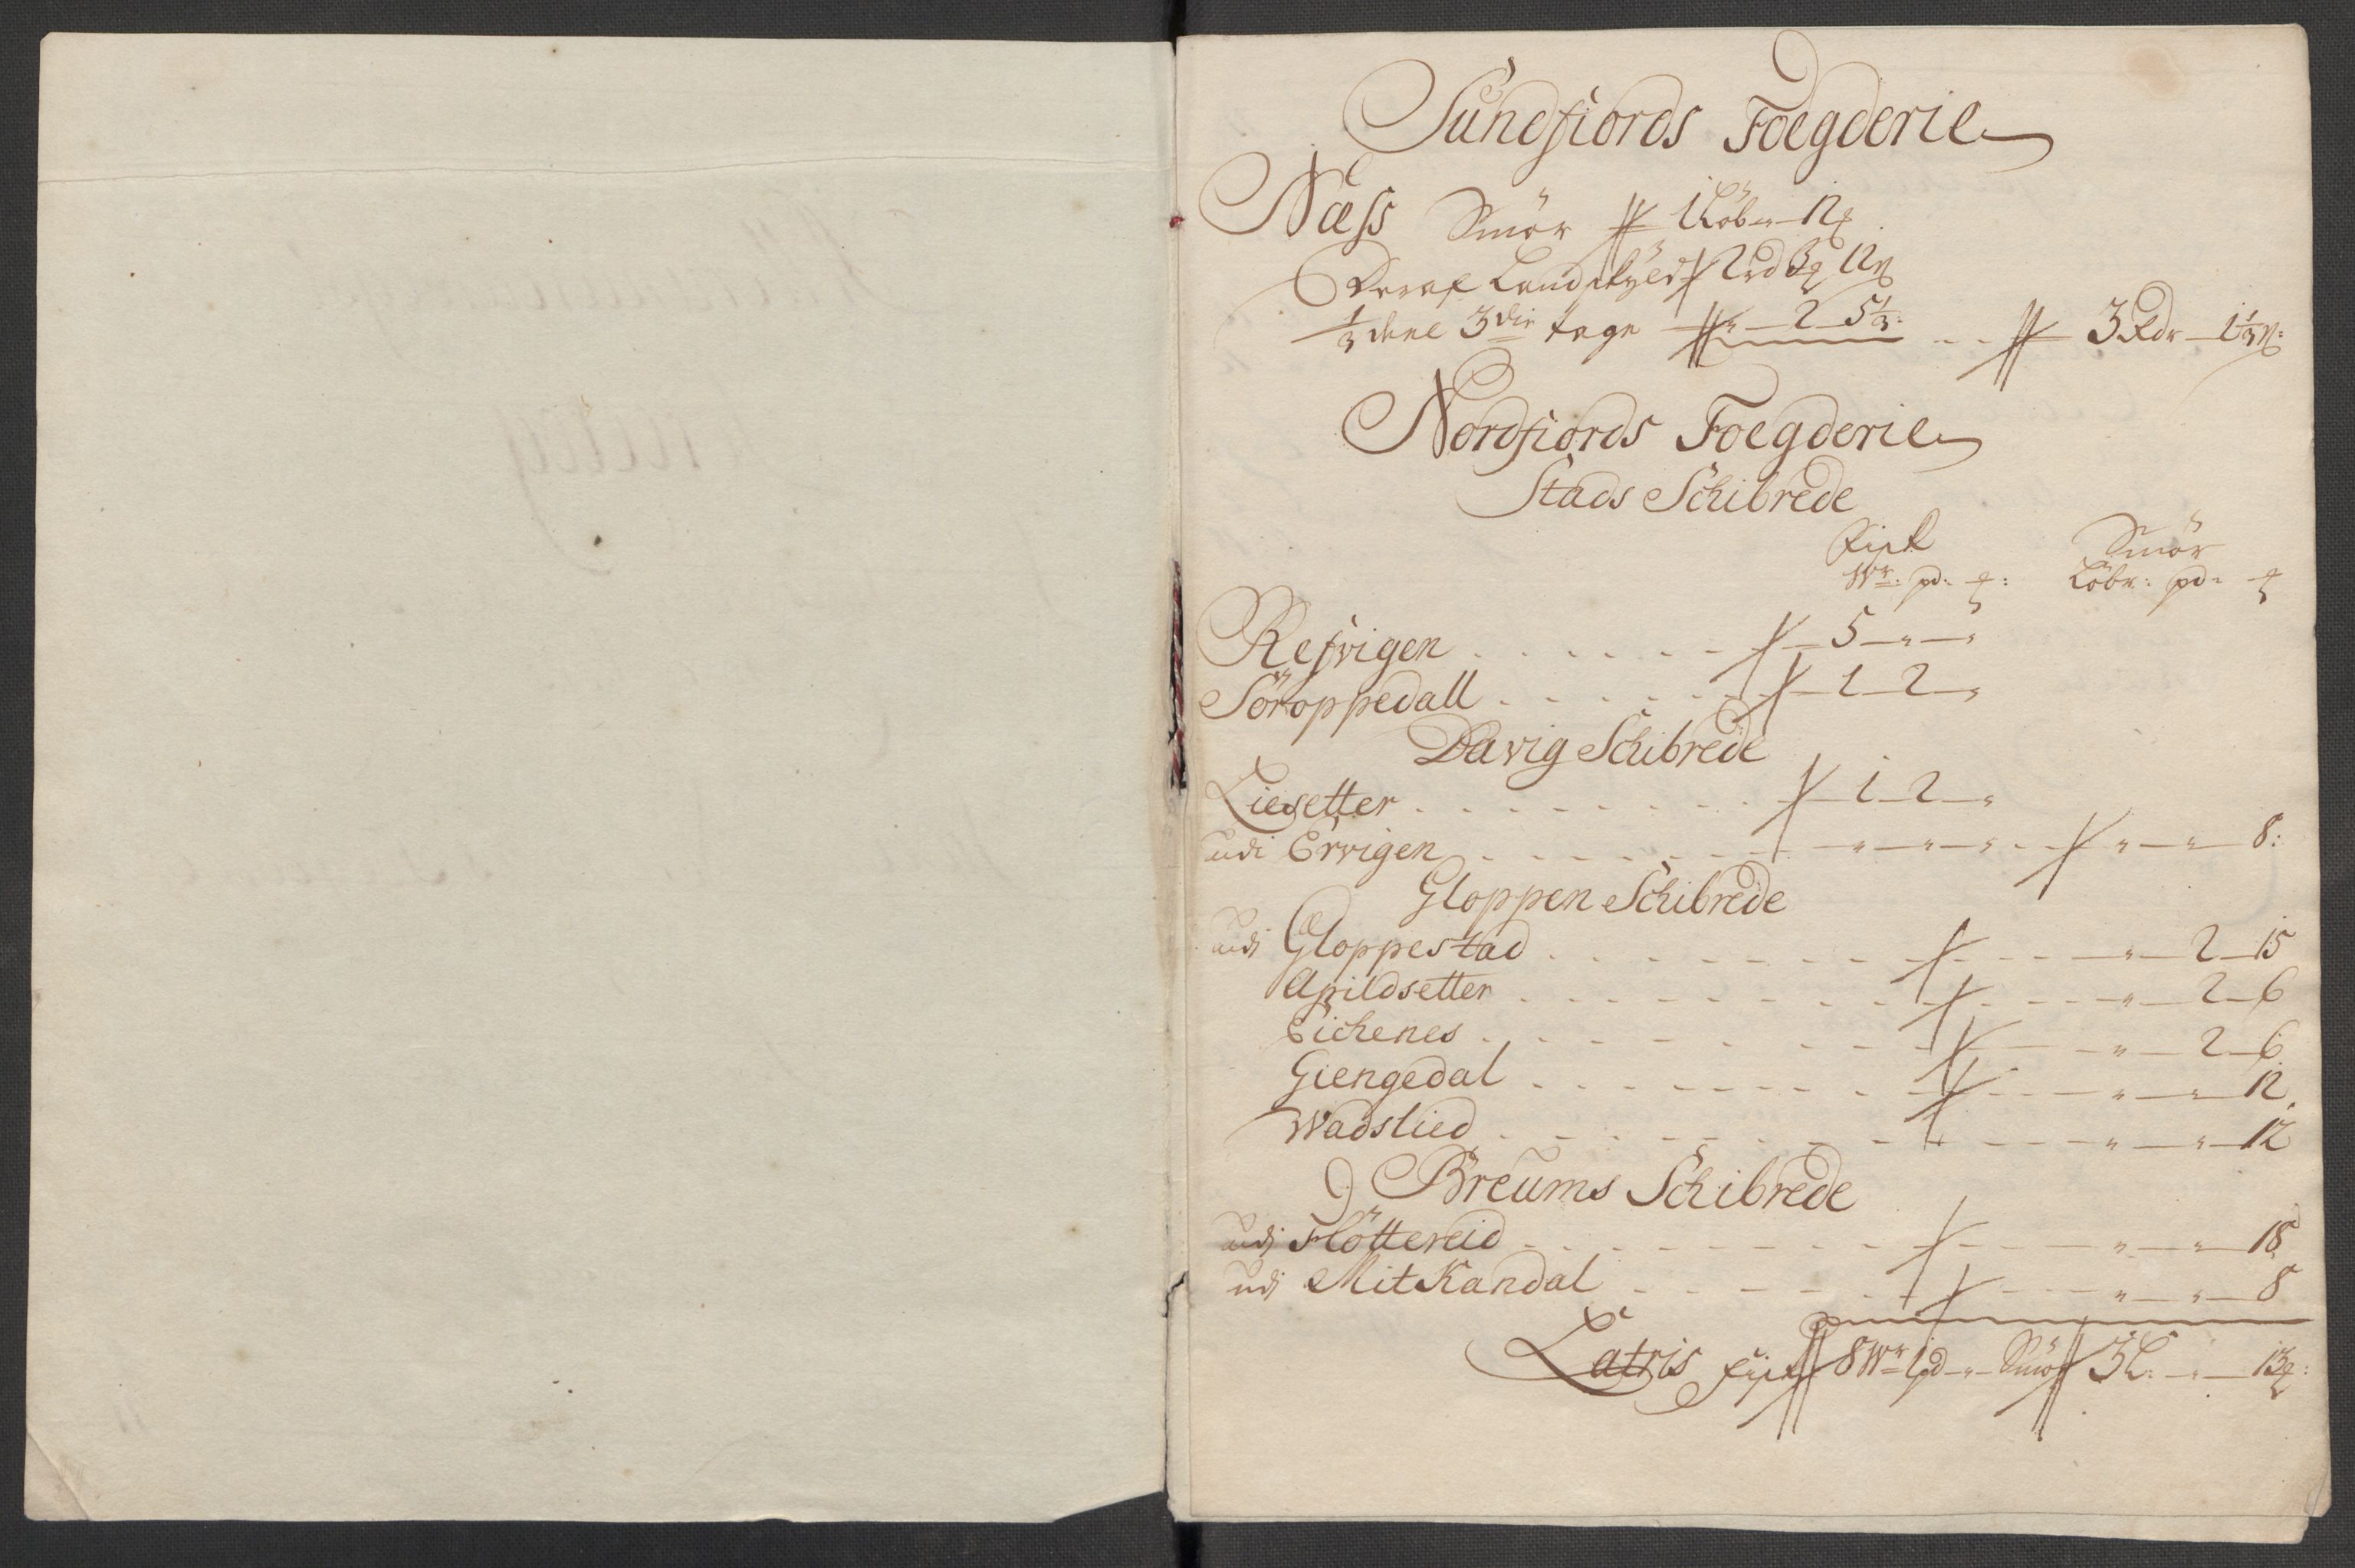 Sundfiords Foegderie
Næss Smör 1 Löb - 12
Deraf Landskyld 2 rd 3 12
1/3 deel 3die tage - 2 5 1/3: - - 3 Rdr - 1 1/3
Nordfiords Foegderie
Stads Schibrede
Fisk Smör
Wr: pd: Löbr: pd:
Refvigen 5 - " - "
Söroppedall 1 - 2 - "
Davig Schibrede
Liesetter 1 - 2 - "
udi Ervigen " - " - " " - " 8:
Gloppen Schibrede
udi Gloppestad " - 2 - 15
Apildsetter " - 2 - 6
Eichenes " - 2 - 6
Giengedal " - " 12
Wadslied " - " - 12
Breums Schibrede
udi Flöttereid " - " - 18
udi Mit Kandal " - " - 8
Latris fisk 8 Wr 1 pd - " - Smör 3 L: " - 13